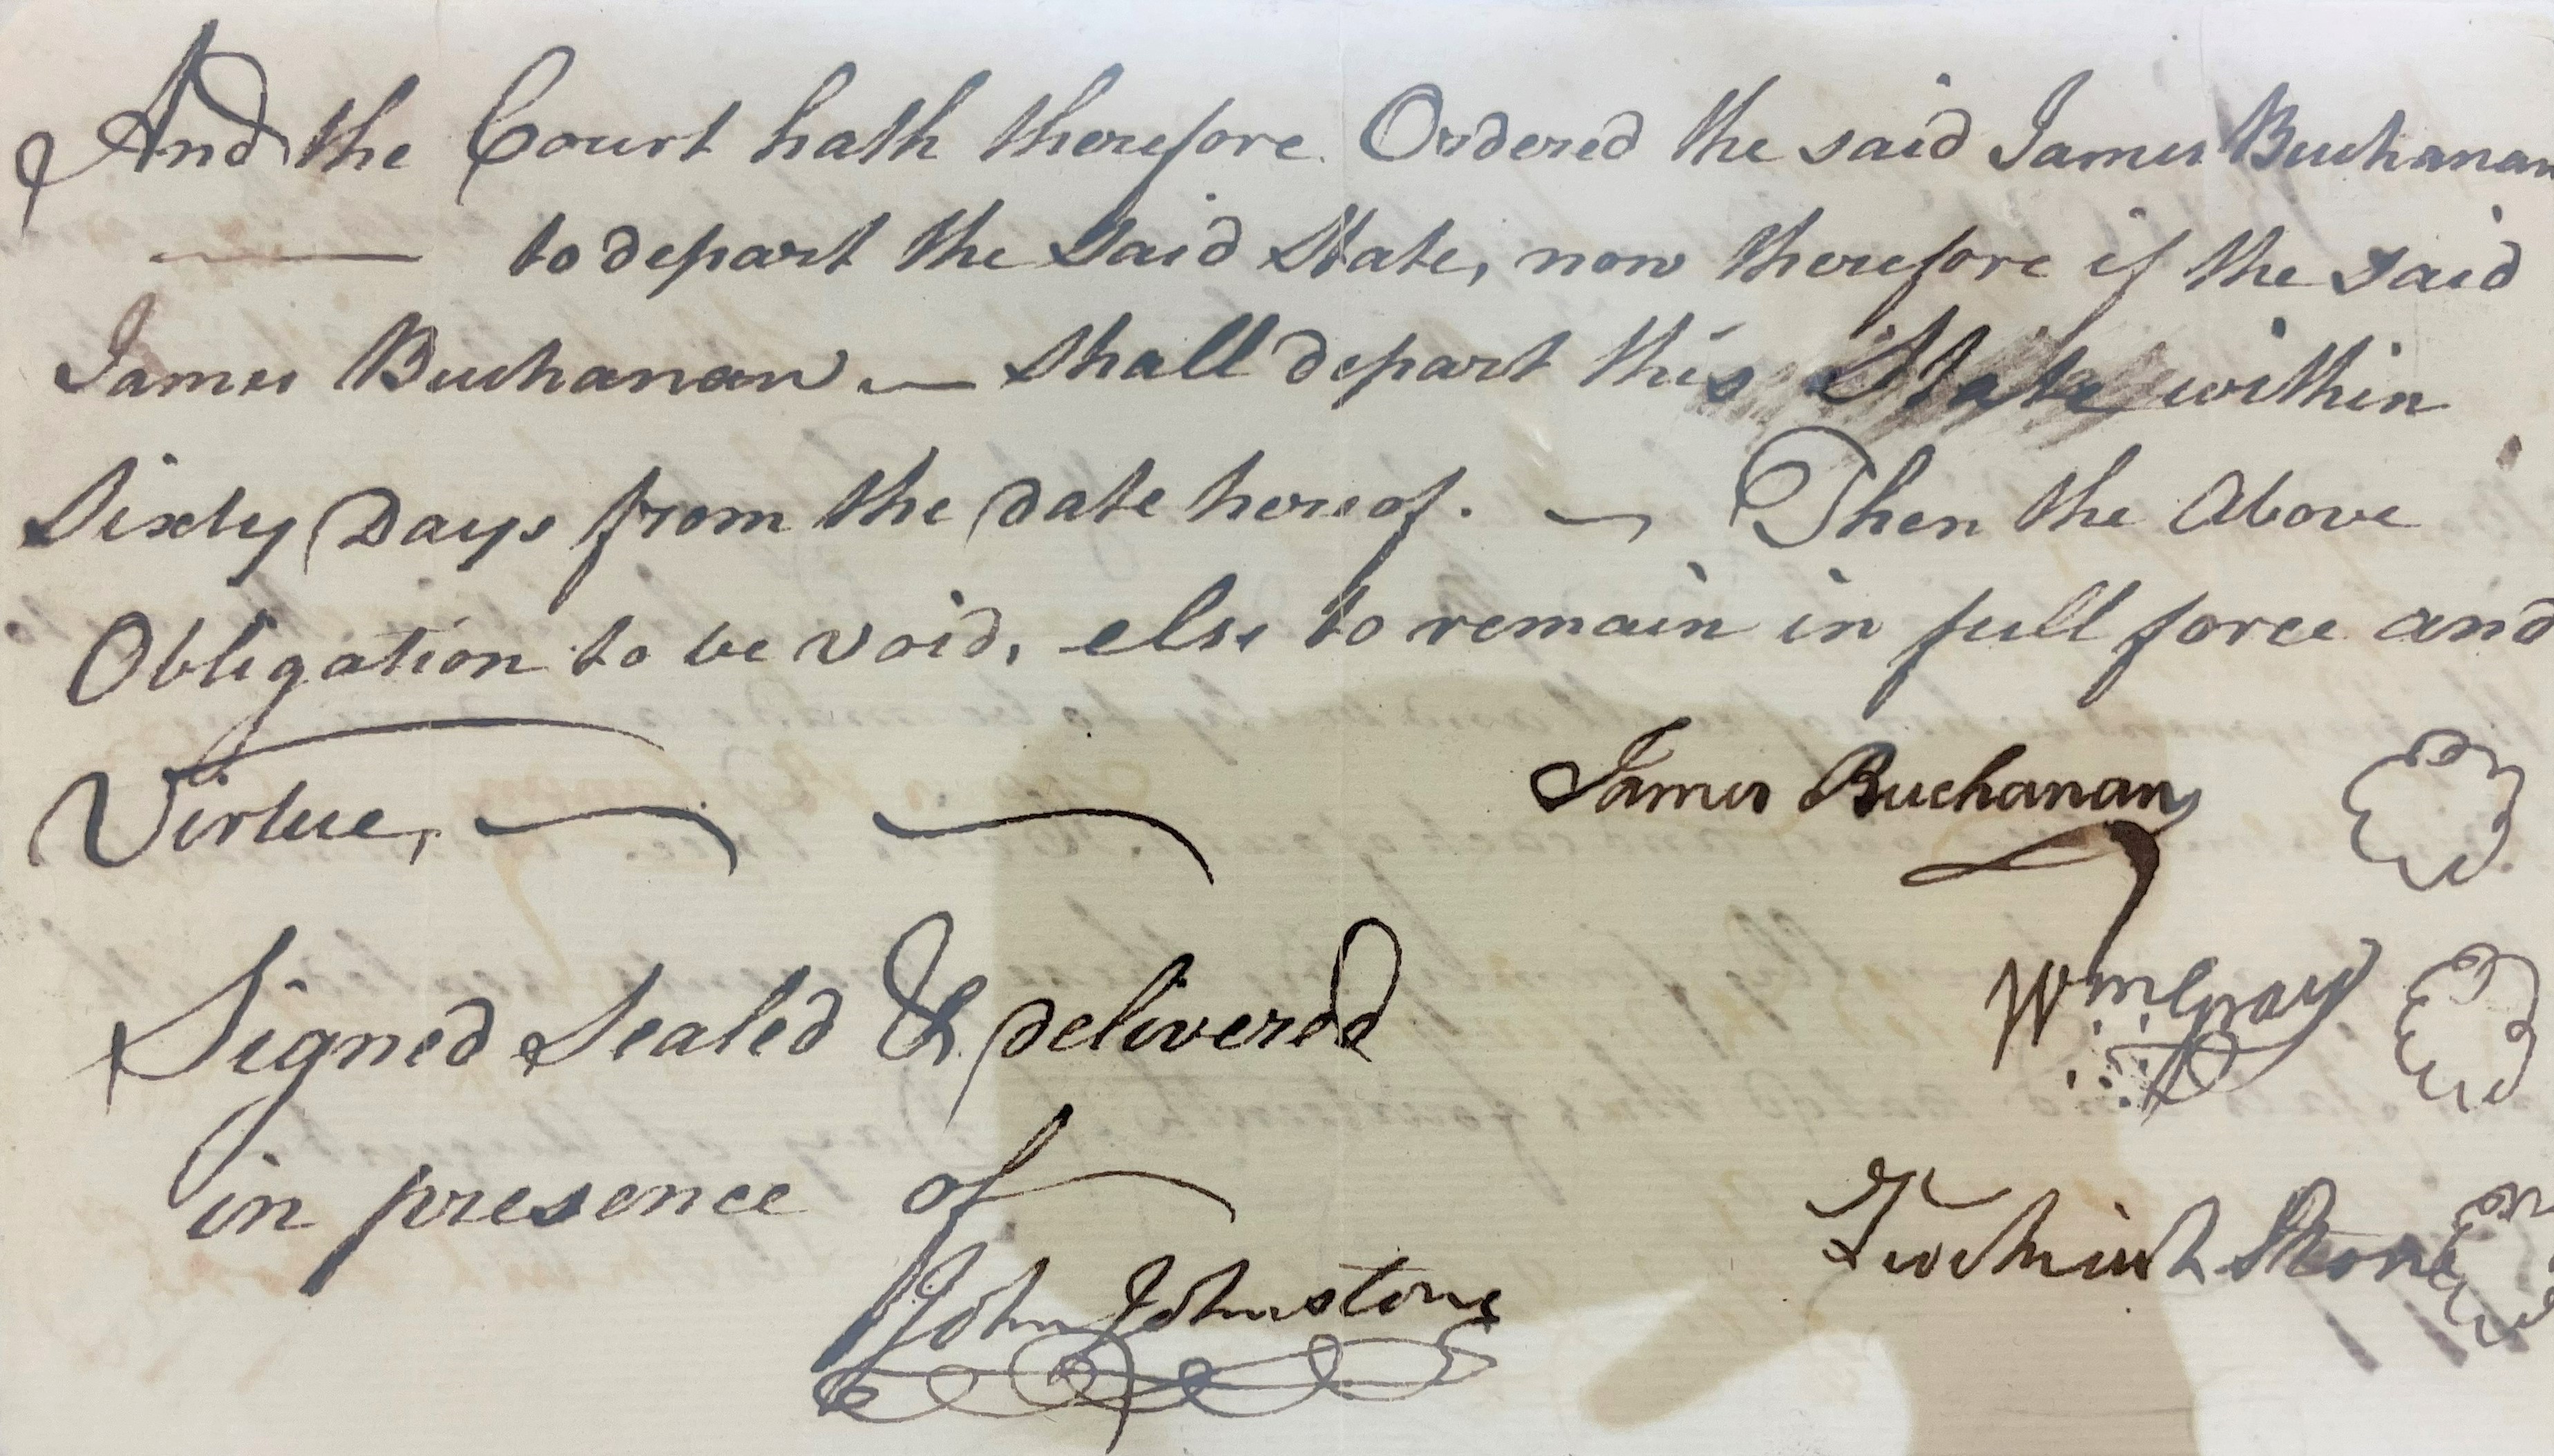 And the Court hath therefore Ordered the said James Buchanan
— to depart the Said State, now therefore if the Said
James Buchanan — Shall depart this State within
Sixty Days from the date hereof. — Then the Above
Obligation to be void, else to remain in full force and
Virtue, — —
James Buchanan
Signed Sealed & deliverd
Wm Gray
in presence of
Stone
John Johnstone